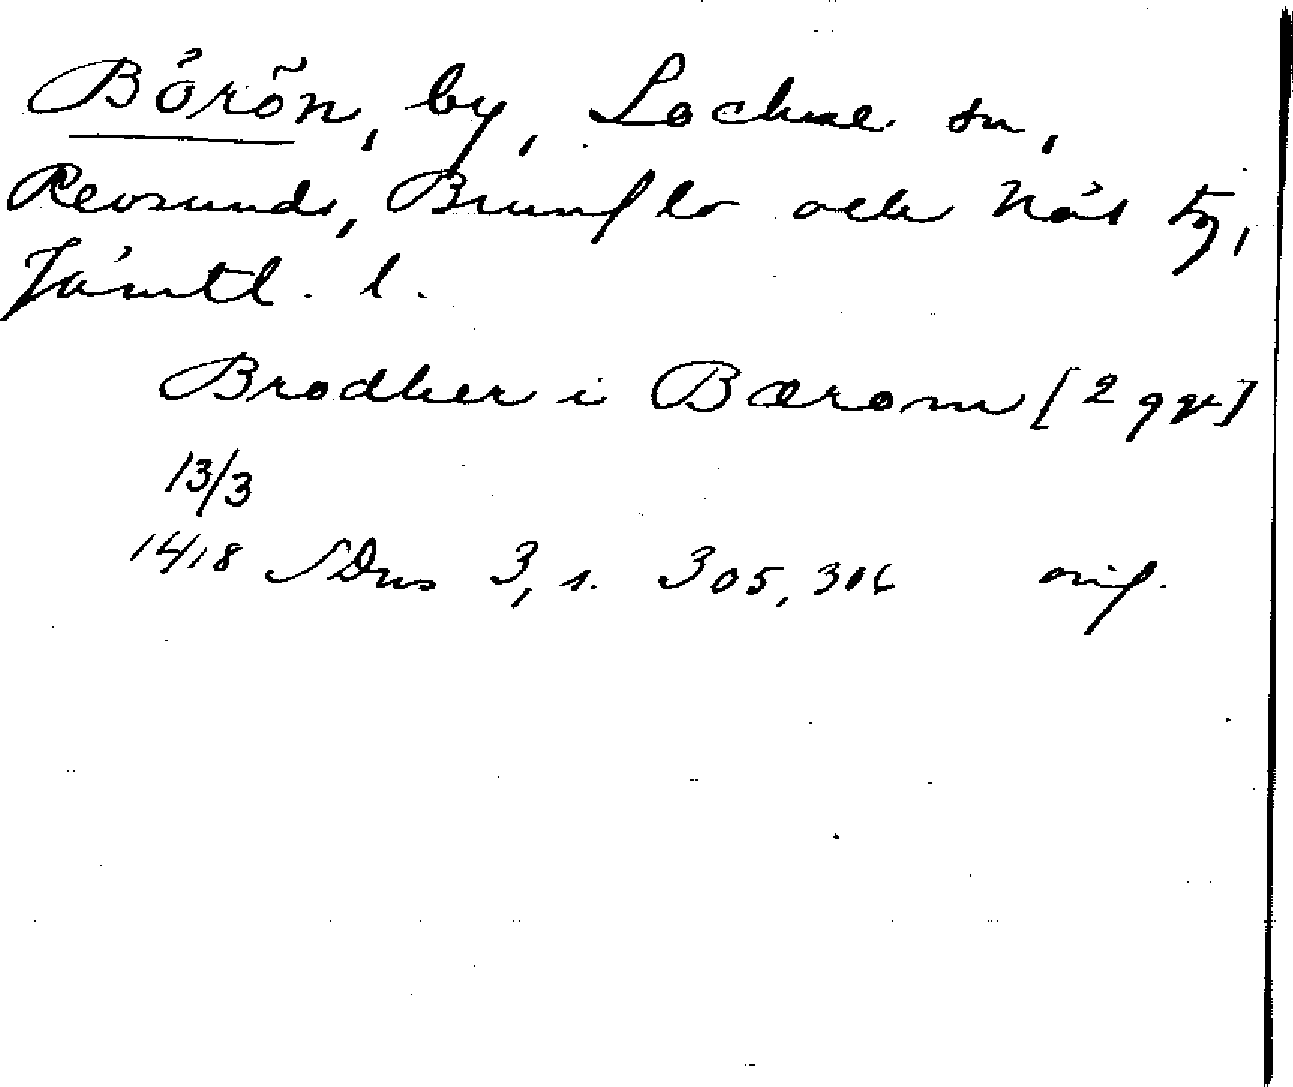 Börön, by, Lockne sn,
Revsunds, Brunflo och Näs tg,
Jämtl. l.
Brodher i Bærom [2 ggr]
13/3
1418 SDns 3, s. 305, 306 orig.